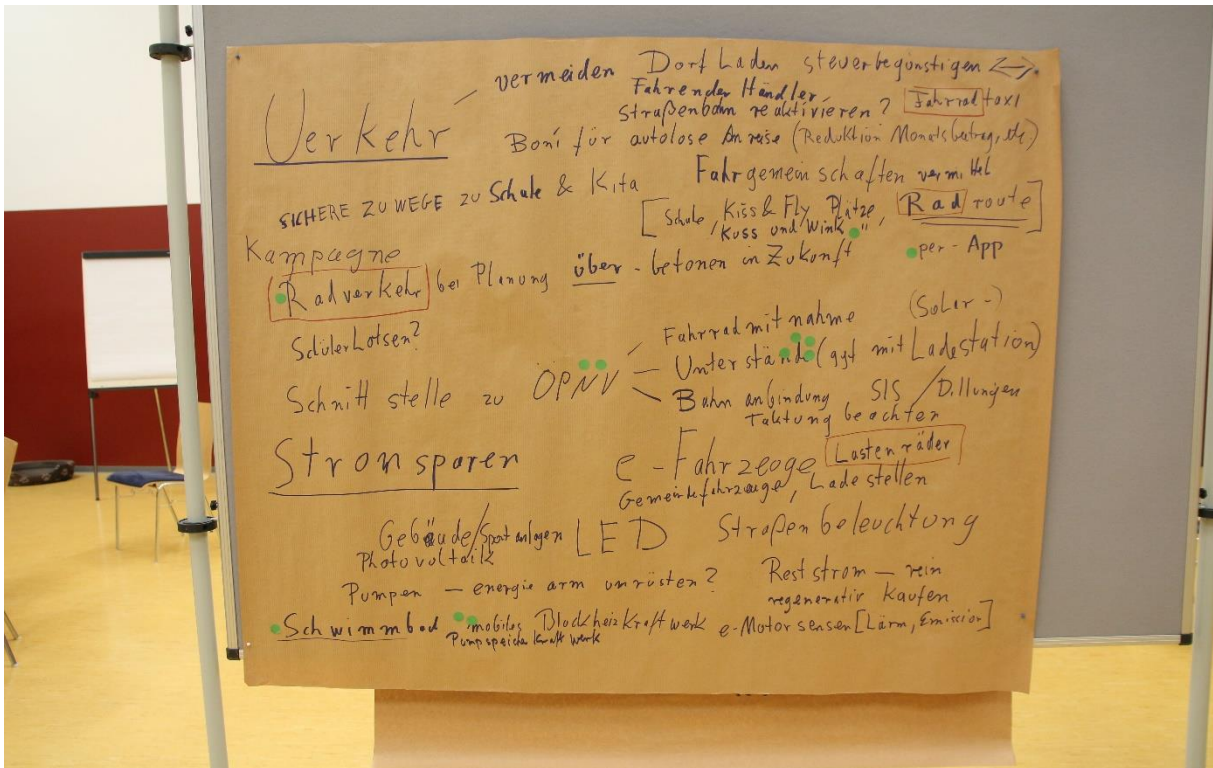 vermeiden Dorf Laden steuerbegünstigen <->
Fahrender Händler
Straßenbahn reaktivieren? Fahrradtaxi
Verkehr
Boni für autolose Anreise (Reduktion Monatsbeitrag, etc.)
SICHERE ZUWEGE ZU Schule & Kita
Fahrgemeinschaften vermittel
[Schule, Kiss & Fly, Plätze, Radroute]
"Kuss und Wink"
per-App
Kampagne
Radverkehr bei Planung über-betonen in Zukunft
Schülerlotsen?
Schnittstelle zu ÖPNV
Fahrradmitnahme
(Solar-)
Unterstände (ggf mit Ladestation)
Bahnanbindung SIS / Dillungen
Taktung beachten
Stromsparen
e-Fahrzeuge Lastenräder
Gemeindefahrzeuge, Ladestellen
Gebäude/Sportanlagen LED Straßenbeleuchtung
Photovoltaik
Pumpen - energiearm umrüsten?
Reststrom - rein
regenerativ Kaufen
Schwimmbad mobiles Blockheizkraftwerk e-Motorsensen [Lärm, Emission]
Pumpspeicherkraftwerk